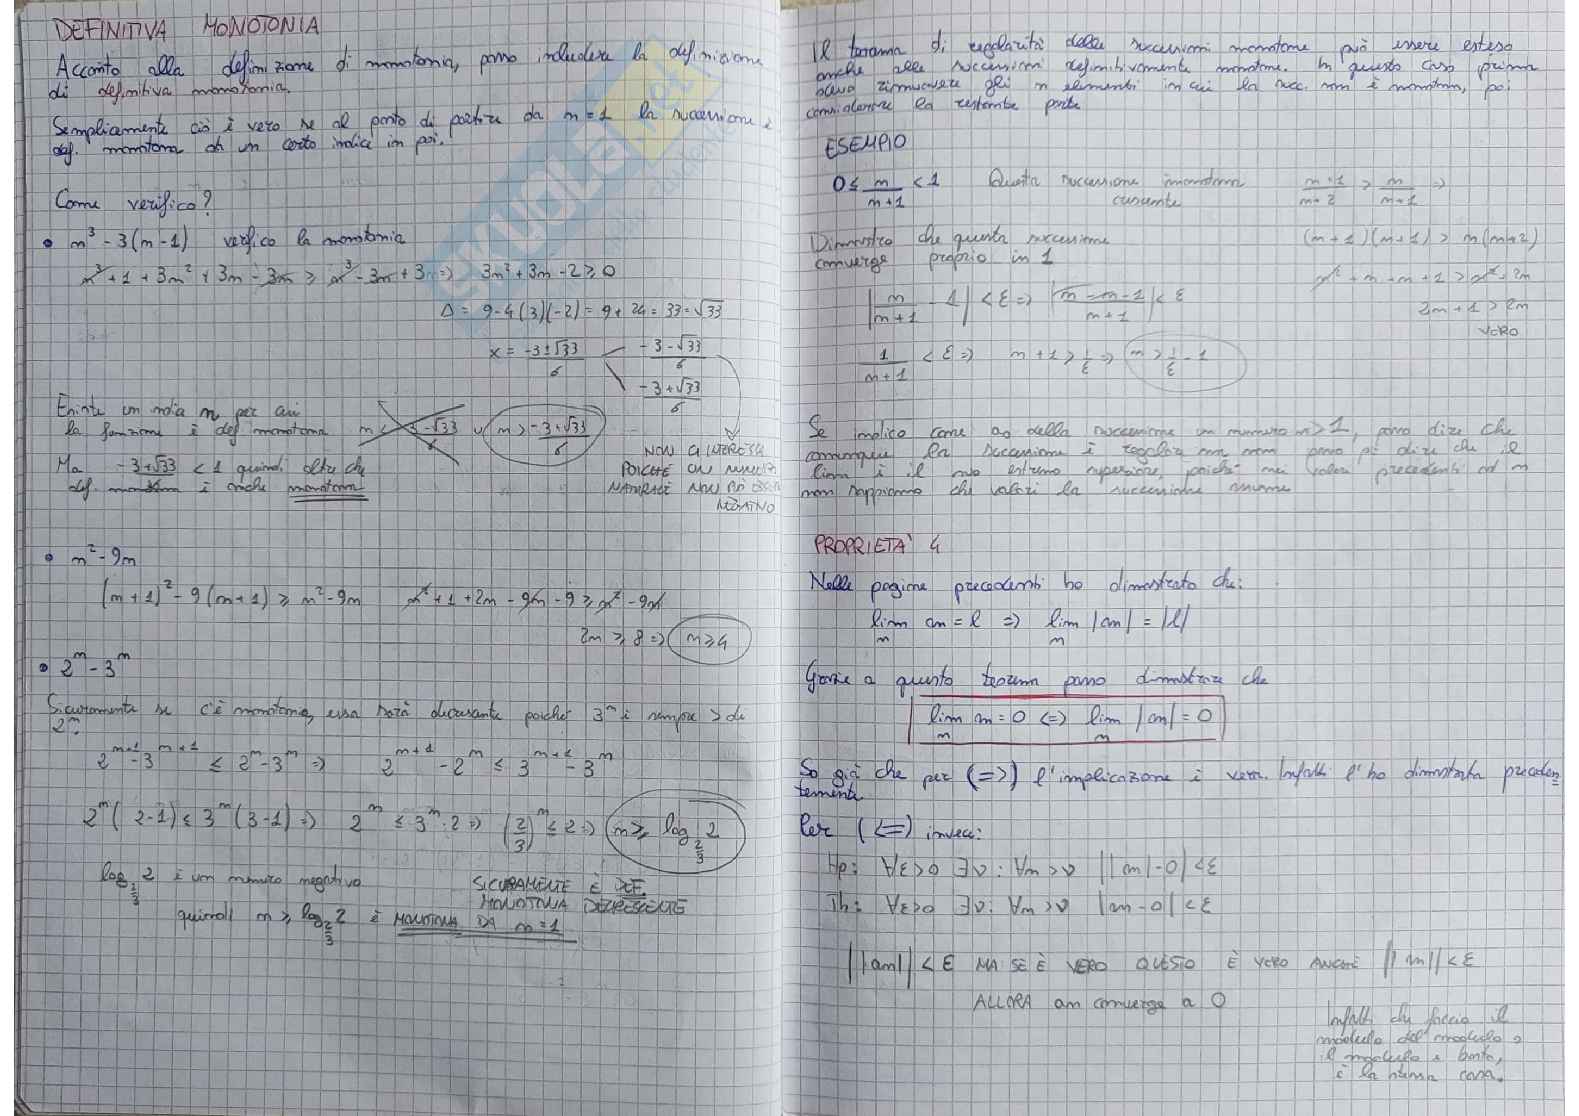 DEFINITIVA MONOTONIA
Accanto alla definizione di monotonia, posso includere la definizione
di definitiva monotonia.
Semplicemente ciò è vero se al posto di partire da n=1 la successione è
def. monotona da un certo indice in poi.
Come verifico?
• n³ - 3(n-1) verifico la monotonia
n³ + 1 + 3n² + 3n - 3n ≥ n³ - 3n + 3 => 3n² + 3n - 2 ≥ 0
Δ = 9 - 4(3)(-2) = 9 + 24 = 33 = √33
x = (-3±√33)/6 (-3-√33)/6
(-3+√33)/6
Esiste un indice n per cui
la funzione è def monotona n < (-3-√33)/6 ∪ n > (-3+√33)/6
NON CI INTERESSA
POICHÉ UN NUMERO
NATURALE NON PUÒ ESSERE
NEGATIVO
Ma (-3+√33)/6 < 1 quindi oltre che
def. monotona è anche monotona
• n² - 9n
(n+1)² - 9(n+1) ≥ n² - 9n n² + 1 + 2n - 9n - 9 ≥ n² - 9n
2n ≥ 8 => n ≥ 4
• 2ⁿ - 3ⁿ
Sicuramente se c'è monotonia, essa sarà decrescente poiché 3ⁿ è sempre > di
2ⁿ.
2ⁿ⁺¹ - 3ⁿ⁺¹ ≤ 2ⁿ - 3ⁿ => 2ⁿ⁺¹ - 2ⁿ ≤ 3ⁿ⁺¹ - 3ⁿ
2ⁿ(2-1) ≤ 3ⁿ(3-1) => 2ⁿ ≤ 3ⁿ·2 => (2/3)ⁿ ≤ 2 => n ≥ log_{2/3} 2
log_{2/3} 2 è un numero negativo
quindi n ≥ log_{2/3} 2 è MONOTONA DA n=1
SICURAMENTE È DEF.
MONOTONA DECRESCENTE
Il teorema di regolarità delle successioni monotone, può essere esteso
anche alle successioni definitivamente monotone. In questo caso prima
devo rimuovere gli n elementi in cui la succ. non è monotona, poi
considerare la restante parte
ESEMPIO
0 ≤ n/(n+1) < 1 Questa successione è monotona
crescente
(n+1)/(n+2) > n/(n+1) =>
(n+1)(n+1) > n(n+2)
n² + n + n + 1 > n² + 2n
2n+1 > 2n
VERO
Dimostro che questa successione
converge proprio in 1
|n/(n+1) - 1| < ε => |(n-n-1)/(n+1)| < ε
1/(n+1) < ε => n+1 > 1/ε => n > 1/ε - 1
Se implico come a₀ della successione un numero n>1, posso dire che
comunque la successione è regolare ma non posso più dire che il
lim è il suo estremo superiore, poiché nei valori precedenti ad n
non sappiamo che valori la successione assume
PROPRIETÀ 4
Nelle pagine precedenti ho dimostrato che:
lim_n an = l => lim_n |an| = |l|
Grazie a questo teorema posso dimostrare che
lim_n an = 0 <=> lim_n |an| = 0
So già che per (=>) l'implicazione è vera. Infatti l'ho dimostrata preceden=
temente.
Per (<=) invece:
Hp: ∀ε>0 ∃ν : ∀n>ν ||an|-0| < ε
Th: ∀ε>0 ∃ν : ∀n>ν |an-0| < ε
||an|| < ε MA SE È VERO QUESTO È VERO ANCHE ||an|| < ε
ALLORA an converge a 0
Infatti che faccio il
modulo del modulo o
il modulo e basta,
è la stessa cosa.
SKUOLA.net